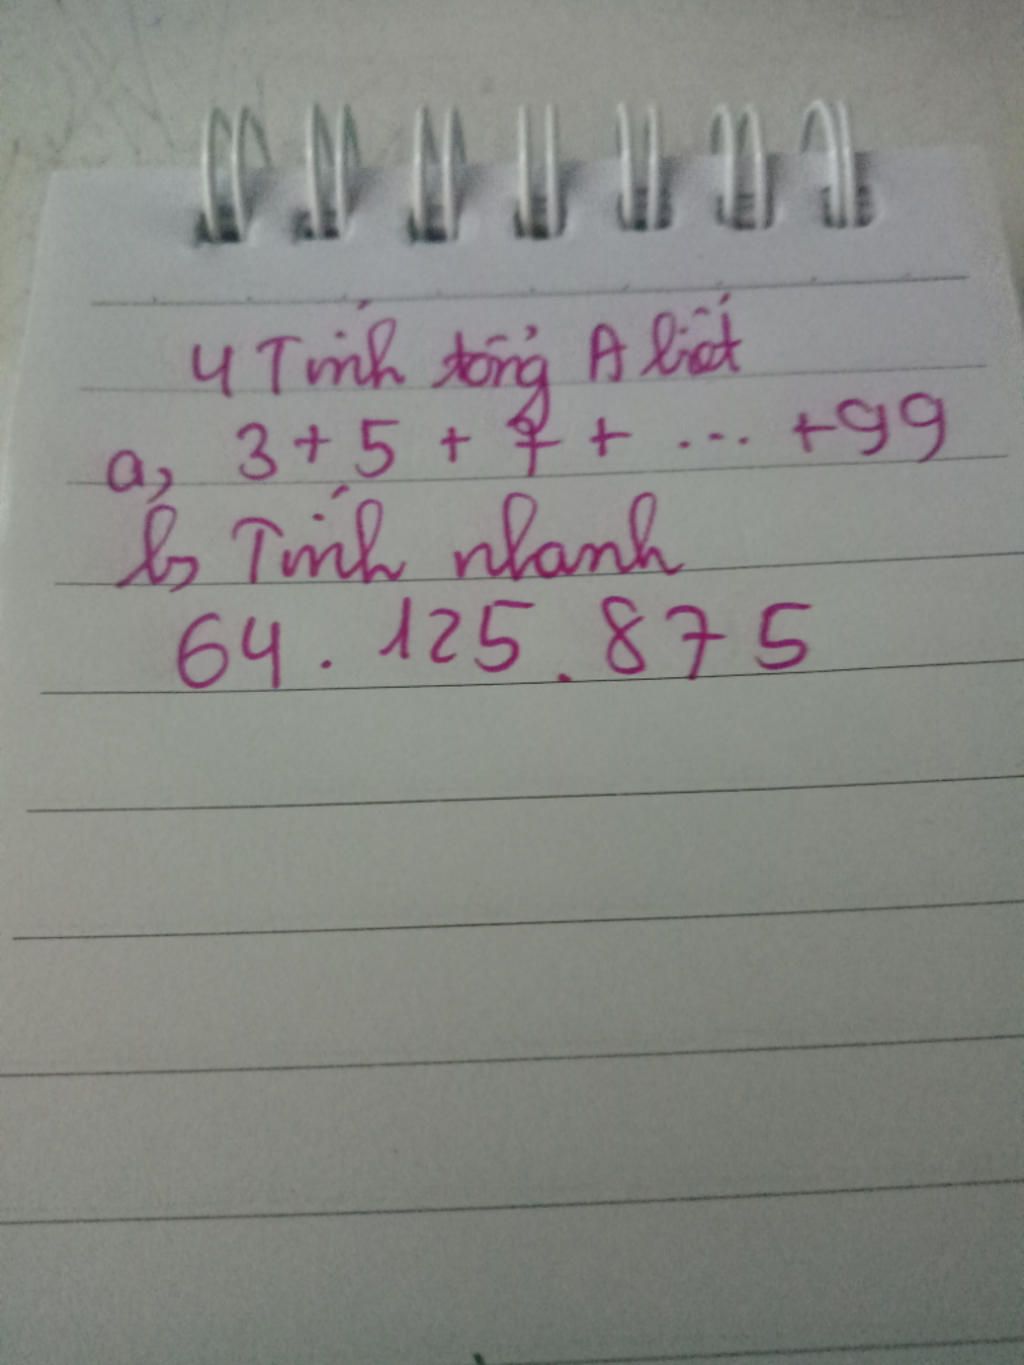 4 Tính tổng A biết
a, 3 + 5 + 7 + ... + 99
b, Tính nhanh
64 . 125 . 875